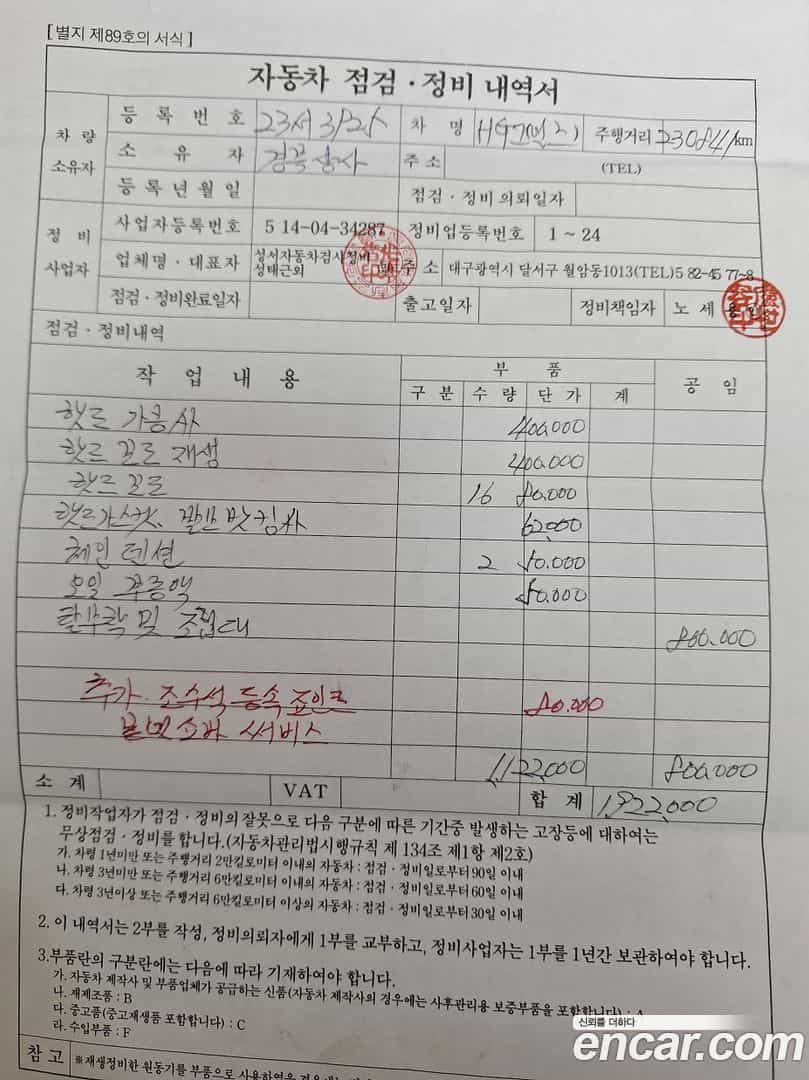 [ 별지 제89호의 서식 ]
자동차 점검 · 정비 내역서
차량 소유자 등록번호 차명 주행거리 230841 km
소유자 경북상사 주소 (TEL)
등록년월일 점검 · 정비 의뢰일자
정비 사업자 사업자등록번호 5 14-04-34287 정비업등록번호 1 ~ 24
업체명 · 대표자 성서자동차검사정비 성태근외 주소 대구광역시 달서구 월암동1013(TEL)5 82-45 77~8
점검 · 정비완료일자 출고일자 정비책임자 노 세
점검 · 정비내역
작 업 내 용 부 품 공 임
구 분 수 량 단 가 계
햇드 가공사 400.000
햇드 재생 400.000
햇드 16 80.000
햇드가스켓, 62,000
체인 텐션 2 50.000
오일 50.000
탈부착 및 조립대 800.000
추가. 조수석 등속 죠인트 80.000
써비스
1,122,000 800.000
소 계 VAT 합 계 1,922,000
1. 정비작업자가 점검 · 정비의 잘못으로 다음 구분에 따른 기간중 발생하는 고장등에 대하여는
무상점검 · 정비를 합니다.(자동차관리법시행규칙 제 134조 제1항 제2호)
가. 차령 1년미만 또는 주행거리 2만킬로미터 이내의 자동차 : 점검 · 정비일로부터 90일 이내
나. 차령 3년미만 또는 주행거리 6만킬로미터 이내의 자동차 : 점검 · 정비일로부터 60일 이내
다. 차령 3년이상 또는 주행거리 6만킬로미터 이상의 자동차 : 점검 · 정비일로부터 30일 이내
2. 이 내역서는 2부를 작성, 정비의뢰자에게 1부를 교부하고, 정비사업자는 1부를 1년간 보관하여야 합니다.
3.부품란의 구분란에는 다음에 따라 기재하여야 합니다.
가. 자동차 제작사 및 부품업체가 공급하는 신품(자동차 제작사의 경우에는 사후관리용 보증부품을 포함합니다) : A
나. 재제조품 : B
다. 중고품(중고재생품 포함합니다) : C
라. 수입부품 : F
신뢰를 더하다
encar.com
참 고 ※재생정비한 원동기를 부품으로